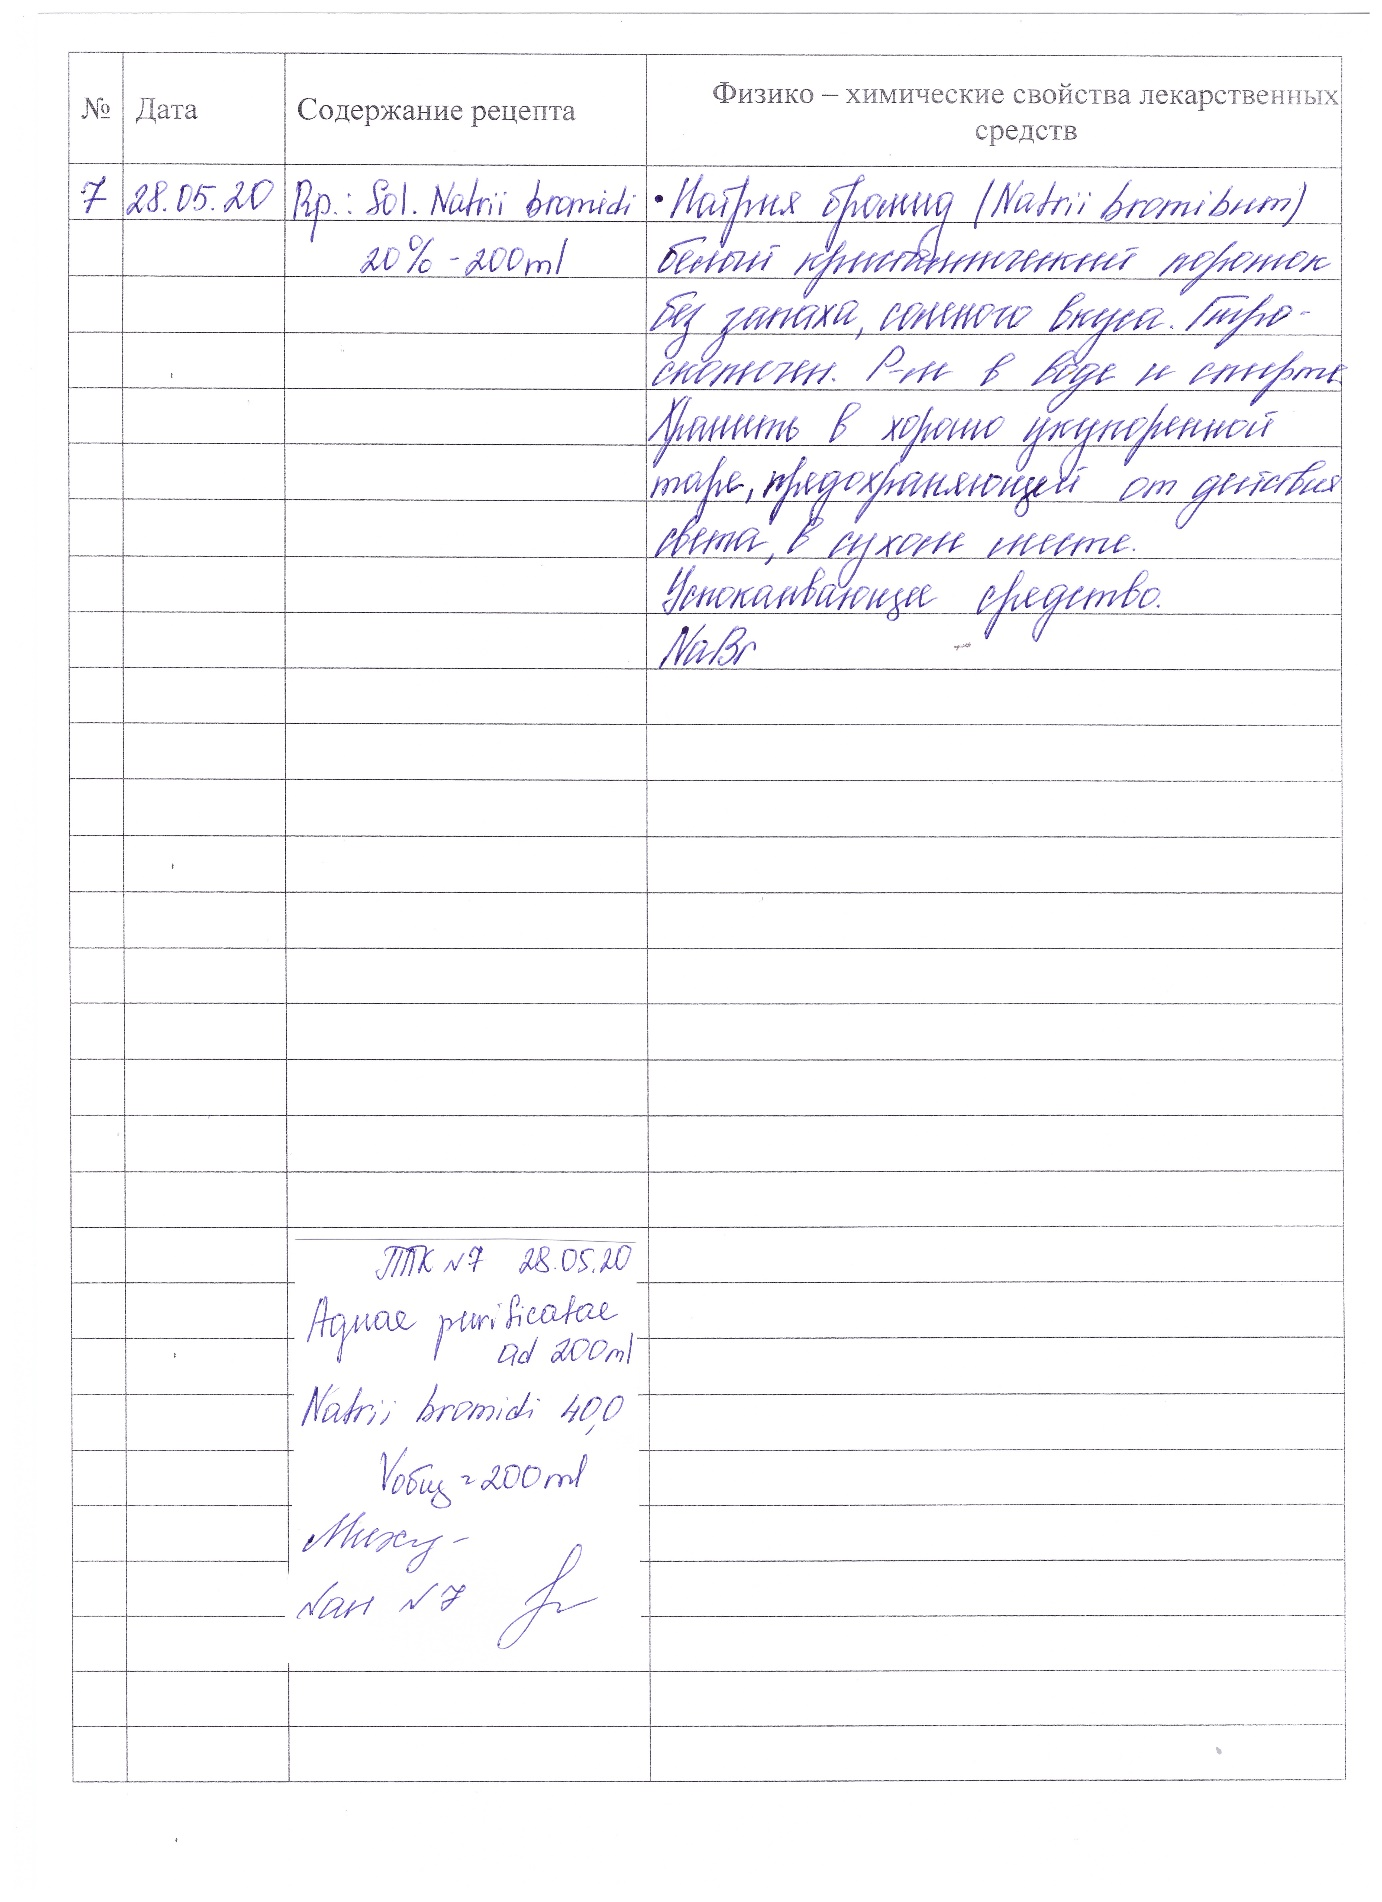 № Дата Содержание рецепта Физико – химические свойства лекарственных
средств
7 28.05.20 Rp.: Sol. Natrii bromidi • Натрия бромид (Natrii bromibum)
20% - 200ml белый кристаллический порошок
без запаха, соленого вкуса. Гигро-
скопичен. Р-м в воде и спирте
Хранить в хорошо укупоренной
таре, предохраняющей от действия
света, в сухом месте.
Успокаивающее средство.
NaBr
ППК №7 28.05.20
Aquae purificatae
ad 200ml
Natrii bromidi 40,0
Vобщ = 200ml
№7